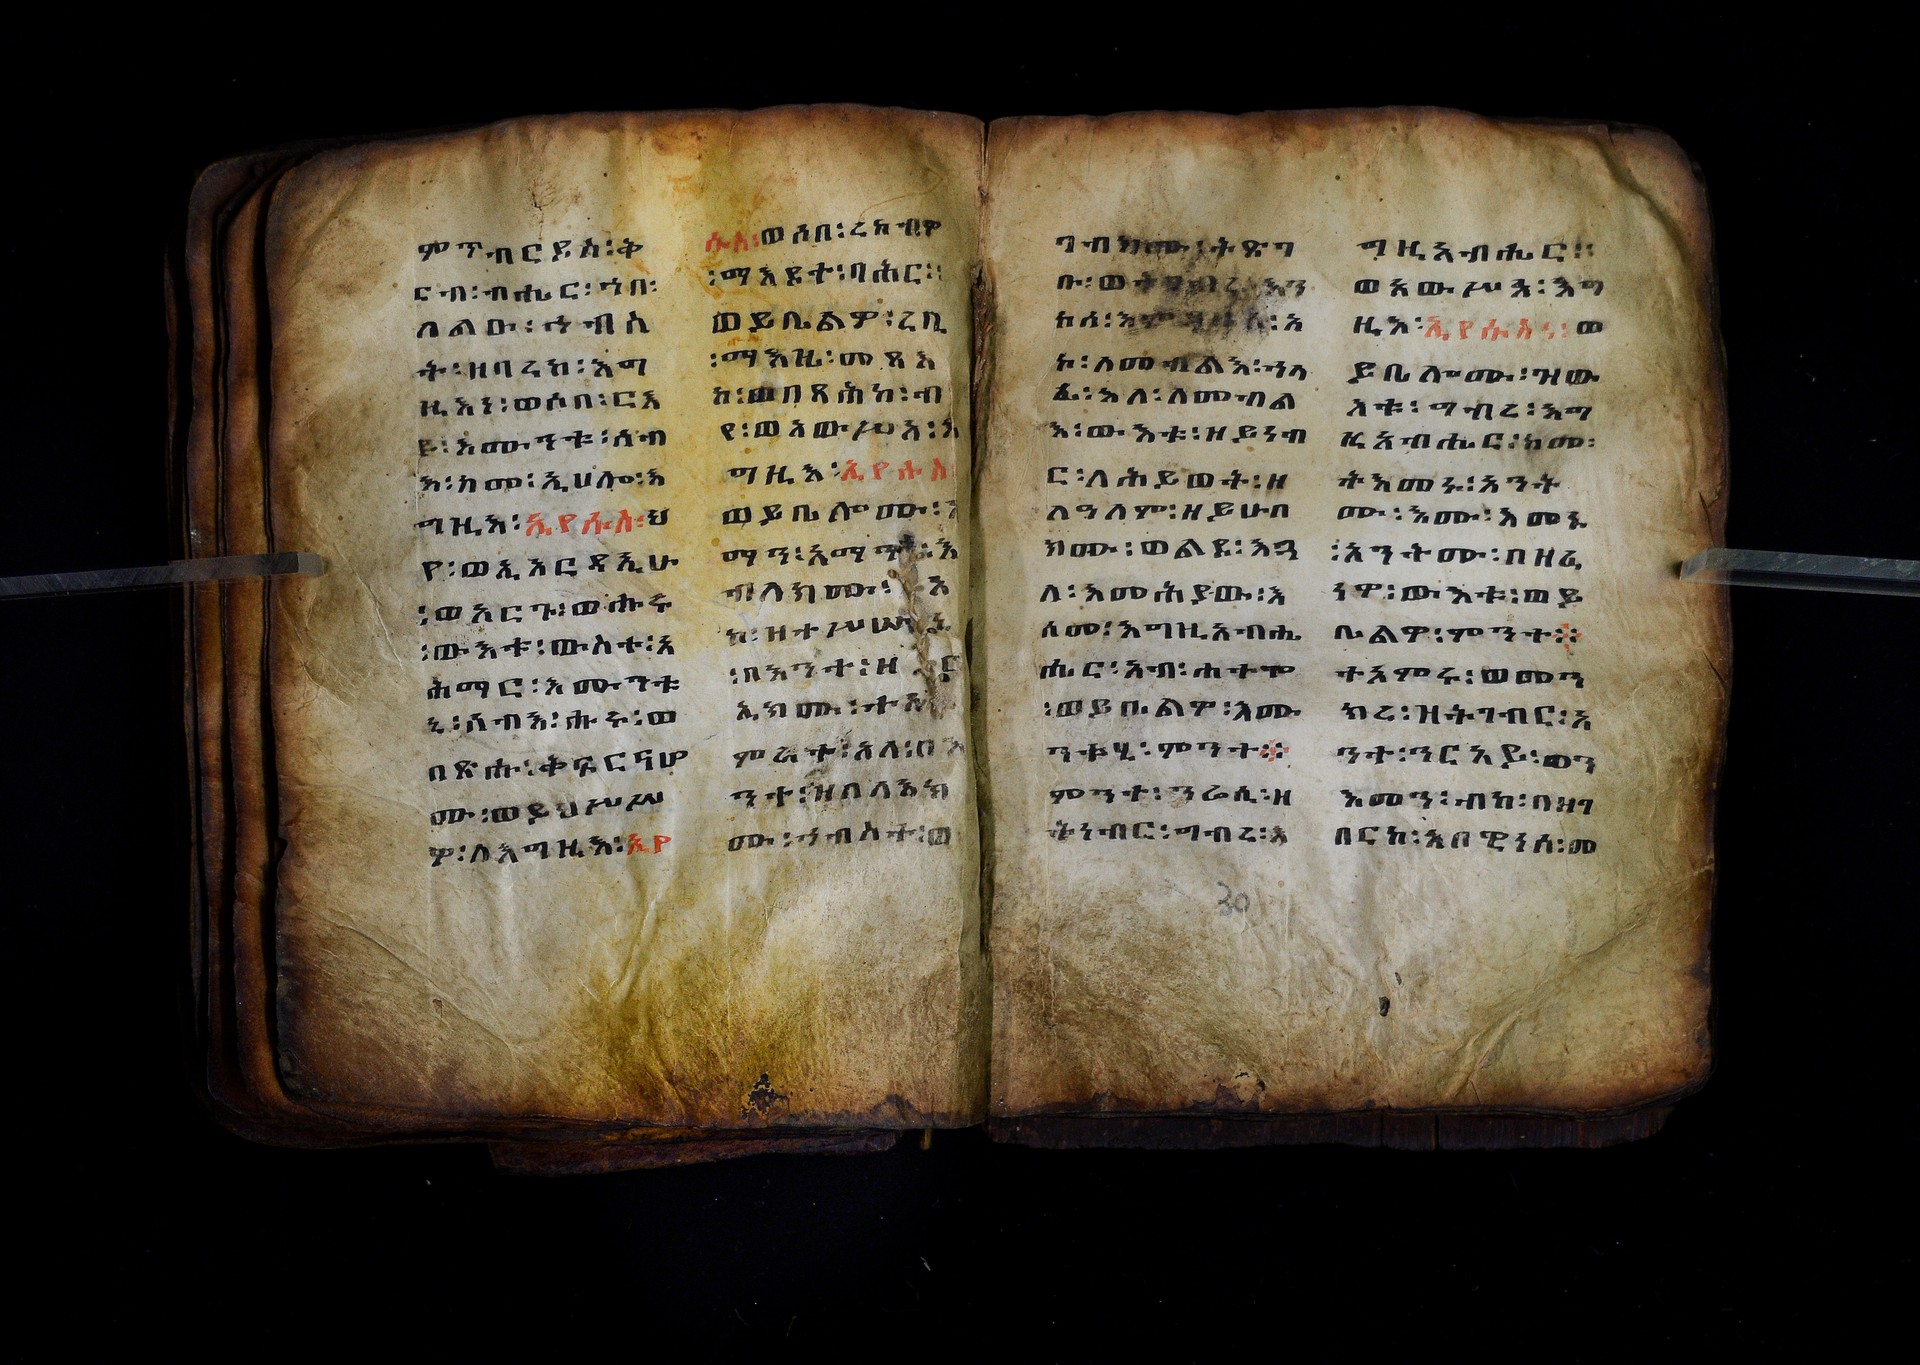 ምጥብርያስ፡ቅ
ሩብ፡ብሔር፡ኀበ፡
በልዑ፡ኀብስ
ት፡ዘባረከ፡እግ
ዚእነ፡ወሶበ፡ርእ
ዩ፡እሙንቱ፡ሰብ
እ፡ከመ፡ኢሀሎ፡እ
ግዚእ፡ኢየሱስ፡ህ
የ፡ወኢአርዳኢሁ
፡ወአርጉ፡ወሖሩ
፡ውእቱ፡ውስተ፡አ
ሕማር፡እሙንቱ
ኒ፡ሰብእ፡ሖሩ፡ወ
በጽሑ፡ቅፍርናሆ
ሙ፡ወይህሥሥ
ዎ፡ለእግዚእ፡ኢየ
ሱስ፡ወሶበ፡ረከብዎ
፡ማእዶተ፡ባሕር፡፡
ወይቤልዎ፡ረቢ
፡ማእዜ፡መጻእ
ከ፡ወበጻሕከ፡ብ
የ፡ወአውሥአ፡እ
ግዚእ፡ኢየሱስ
ወይቤሎሙ፡
ማን፡አማን፡እ
ብለክሙ፡ አ
ኮ፡ዝተሥሡኒ
፡በእንተ፡ዘ ር
ኢክሙ፡ተአ
ምራተ፡አላ፡በእ
ንተ፡ዝበላእክ
ሙ፡ኀብስተ፡ወ
ገብክሙ፡ትጽግ
ቡ፡ወተገብሩ፡እን
ከሰ፡ አ
ኮ፡ለመብልእ፡ኀላ
ፊ፡አላ፡ለመብል
እ፡ውእቱ፡ዘይነብ
ር፡ለሕይወት፡ዘ
ለዓለም፡ዘይሁበ
ክሙ፡ወልደ፡እጓ
ለ፡እመሕያው፡እ
ስመ፡እግዚአብሔ
ሔር፡አብ፡ሐተሞ
፡ወይቤልዎ፡እሙ
ንቱሂ፡ምንተ፡፡
ምንተ፡ንሬሲ፡ዘ
ትነብር፡ግብረ፡እ
ግዚአብሔር፡፡
ወአውሥአ፡እግ
ዚእ፡ኢየሱስ፡፡ወ
ይቤሎሙ፡ዝው
እቱ፡ግብረ፡እግ
ዚአብሔር፡ከመ፡
ተአመኑ፡አንት
ሙ፡እሙ፡እመኒ
፡አንትሙ፡በዘፈ
ነዎ፡ውእቱ፡ወይ
ቤልዎ፡ምንተ፡፡
ተአምረ፡ወመን
ክረ፡ዝትገብር፡አ
ንተ፡ንርአይ፡ወን
እመን፡ብከ፡በዘገ
በርከ፡አበዊነሰ፡መ
30